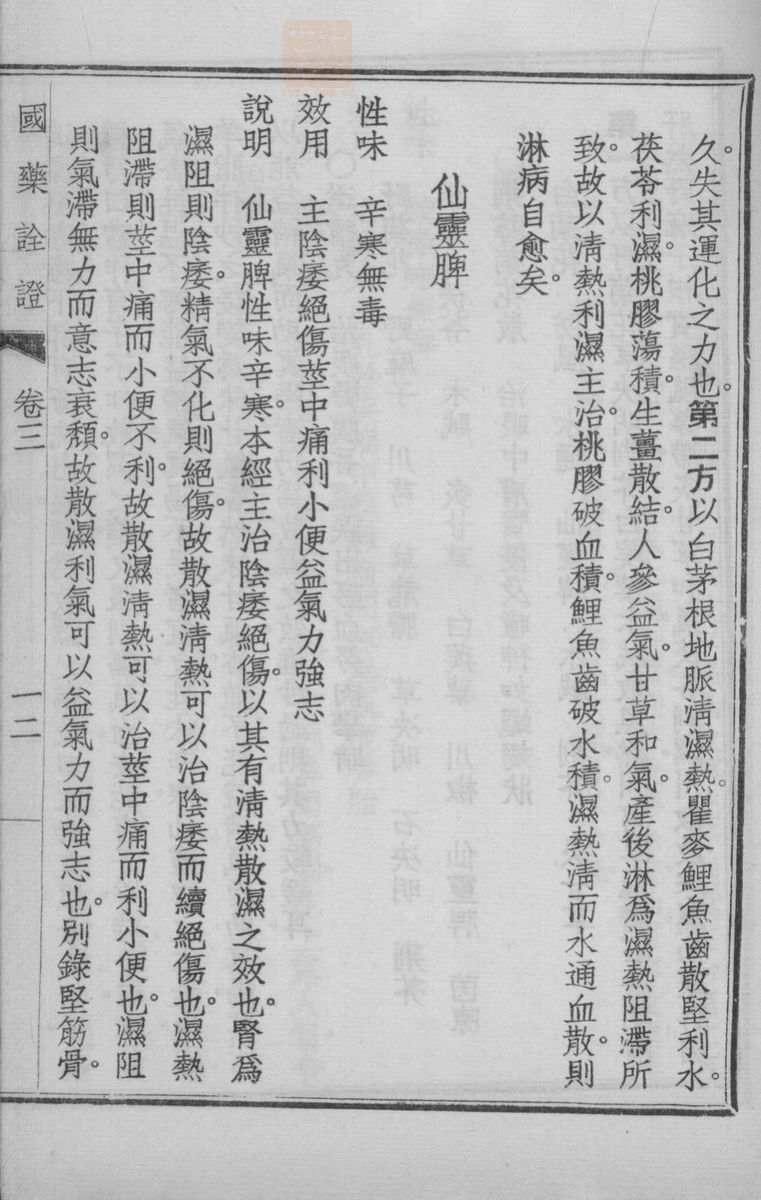 久失其運化之力也。第二方以白茅根地脈清濕熱。瞿麥鯉魚齒散堅利水。
茯苓利濕。桃膠蕩積。生薑散結。人參益氣。甘草和氣。產後淋爲濕熱阻滯所
致。故以清熱利濕主治。桃膠破血積。鯉魚齒破水積。濕熱淸而水通血散。則
淋病自愈矣。
仙靈脾
性味　辛寒無毒
效用　主陰痿絕傷莖中痛利小便益氣力強志
說明　仙靈脾性味辛寒。本經主治陰痿絕傷。以其有淸熱散濕之效也。腎爲
濕阻則陰痿。精氣不化則絕傷。故散濕淸熱可以治陰痿而續絕傷也。濕熱
阻滯則莖中痛而小便不利。故散濕淸熱可以治莖中痛而利小便也。濕阻
則氣滯無力而意志衰頹。故散濕利氣可以益氣力而強志也。別錄堅筋骨。
國藥詮證　卷三　一二